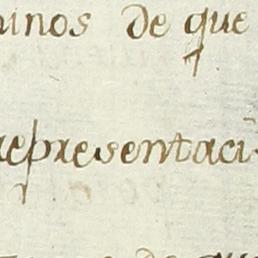 ninos de que
representaci